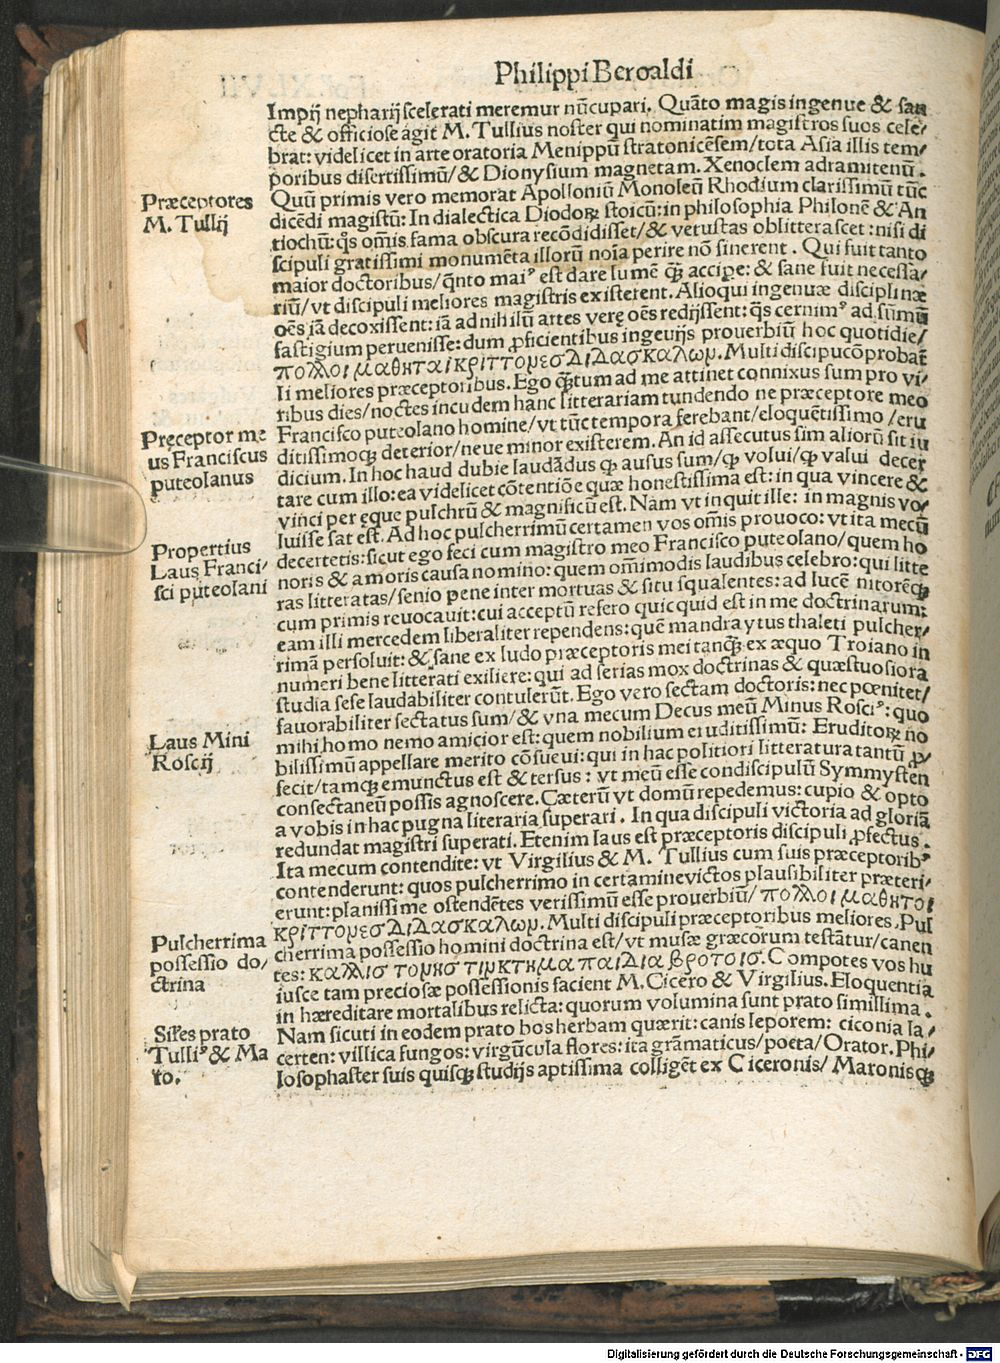 Philippi Beroaldi
Impij nepharij scelerati meremur nũcupari. Quãto magis ingenue & san
cte & officiose agit M. Tullius noster qui nominatim magistros suos cele/
brat: videlicet in arte oratoria Menippũ stratonicẽsem/tota Asia illis tem/
poribus disertissimũ/& Dionysium magnetam. Xenoclem adramitenũ.
Quũ primis vero memorat Apolloniũ Monoleũ Rhodium clarissimũ tũc
Præceptores
M. Tullij
dicẽdi magistũ: In dialectica Diodoꝝ stoicũ: in philosophia Philonẽ & An
tiochũ: q̃s om̃is fama obscura recõdidisset/& vetustas oblitterascet: nisi di
scipuli gratissimi monumẽta illorũ noĩa perire nõ sinerent. Qui fuit tanto
maior doctoribus/q̃nto maiꝰ est dare lumẽ q̃ꝫ accipe: & sane fuit necessa/
riũ/vt discipuli meliores magistris existerent. Alioqui ingenuæ disciplinæ
oẽs iã decoxissent: iã ad nihilũ artes verę oẽs redijssent: q̃s cernimꝰ ad sũmũ
fastigium peruenisse: dum ꝓficientibus ingeurijs prouerbiũ hoc quotidie/
πολλοι μαθηται κριττομεσ διδασκαλωμ. Multi discipucõprobat̃
li meliores præceptoribus. Ego q̃ꝫtum ad me attinet connixus sum pro vi/
ribus dies/noctes incudem hanc litterariam tundendo ne præceptore meo
Preceptor me
us Franciscus
puteolanus
Francisco puteolano homine/vt tũc tempora ferebant/eloquẽtissimo/eru
ditissimoqꝫ deterior/neue minor existerem. An id assecutus sim aliorũ sit iu
dicium. In hoc haud dubie laudãdus ꝙ ausus sum/ꝙ volui/ꝙ valui decer
tare cum illo: ea videlicet cõtentiõe quæ honestissima est: in qua vincere &
vinci per ęque pulchrũ & magnificũ est. Nam vt inquit ille: in magnis vo/
Propertius
Laus Franci/
sci puteolani
luisse sat est. Ad hoc pulcherrimũ certamen vos om̃is prouoco: vt ita mecũ
decertetis: sicut ego feci cum magistro meo Francisco puteolano/quem ho
noris & amoris causa nomino: quem om̃imodis laudibus celebro: qui litte
ras litteratas/senio pene inter mortuas & situ squalentes: ad lucẽ nitorẽqꝫ
cum primis reuocauit: cui acceptũ refero quicquid est in me doctrinarum:
eam illi mercedem liberaliter rependens: quẽ mandraytus thaleti pulcher/
rimã persoluit: & sane ex ludo præceptoris mei tanq̃ꝫ ex æquo Troiano in
numeri bene litterati exiliere: qui ad serias mox doctrinas & quæstuosiora
studia sese laudabiliter contulerũt. Ego vero sectam doctoris: nec pœnitet/
fauorabiliter sectatus sum/& vna mecum Decus meũ Minus Rosciꝰ: quo
Laus Mini
Roscij
mihi homo nemo amicior est: quem nobilium eruditissimũ: Eruditoꝝ no
bilissimũ appellare merito cõsueui: qui in hac politiori litteratura tantũ ꝓ/
fecit/tamqꝫ emunctus est & tersus: vt meũ esse condiscipulũ Symmysten
consectaneũ possis agnoscere. Cæterũ vt domũ repedemus: cupio & opto
a vobis in hac pugna literaria superari. In qua discipuli victoria ad gloriã
redundat magistri superati. Etenim laus est præceptoris discipuli ꝓfectus.
Ita mecum contendite: vt Virgilius & M. Tullius cum suis præceptoribꝰ
contenderunt: quos pulcherrimo in certamine victos plausibiliter præteri/
erunt: planissime ostendẽtes verissimũ esse prouerbiũ/πολλοι μαθητοι
κριττομεσ διδασκαλωμ. Multi discipuli præceptoribus meliores. Pul
Pulcherrima
possessio do/
ctrina
cherrima possessio homini doctrina est/vt musæ græcorum testãtur/canen
tes: καλλισ τομησ τιμκτημα παιδια βροτοισ. Compotes vos hu
iusce tam preciosæ possessionis facient M. Cicero & Virgilius. Eloquentia
in hæreditare mortalibus relicta: quorum volumina sunt prato simillima.
Siles prato
Tulliꝰ & Ma
ro.
Nam sicuti in eodem prato bos herbam quærit: canis leporem: ciconia la/
certen: villica fungos: virgũcula flores: ita grãmaticus/poeta/Orator. Phi/
losophaster suis quisqꝫ studijs aptissima colligẽt ex Ciceronis/Maronisqꝫ
Digitalisierung gefördert durch die Deutsche Forschungsgemeinschaft - DFG